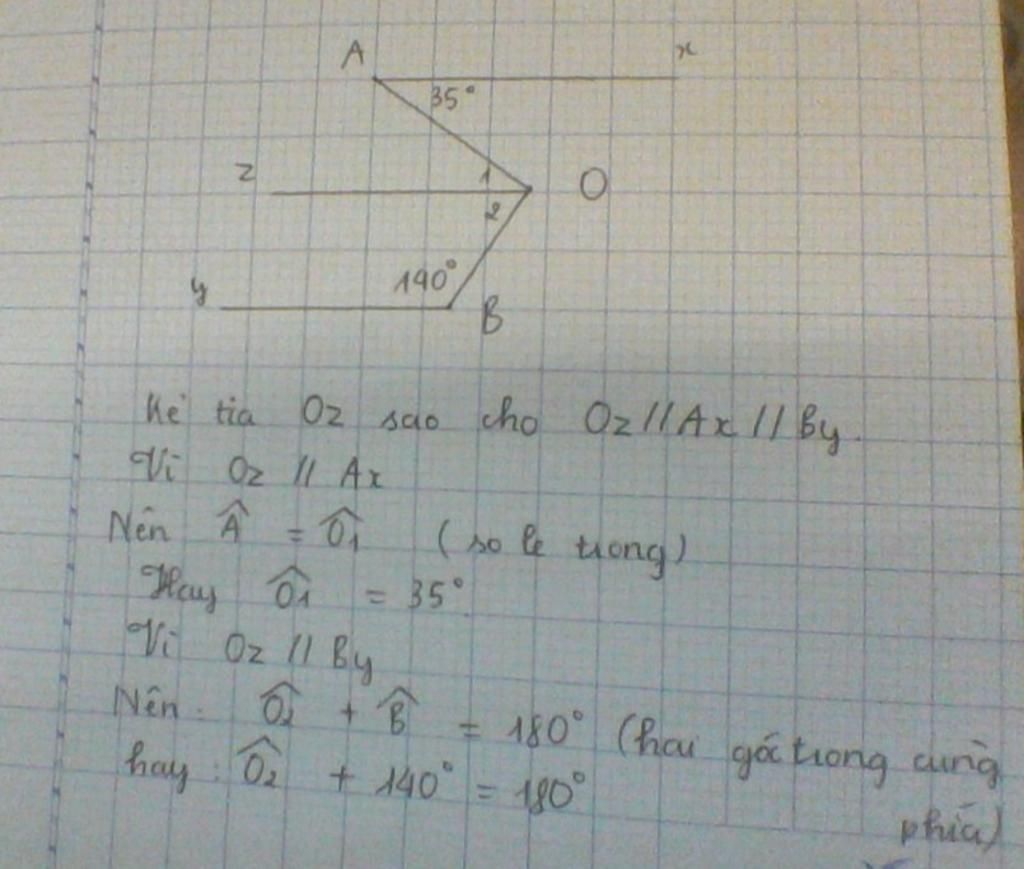 A x
35°
z 1 O
2
140°
y B
Kẻ tia Oz sao cho Oz // Ax // By.
Vì Oz // Ax
Nên Â = Ô1 (so le trong)
Hay Ô1 = 35°
Vì Oz // By
Nên: Ô2 + B̂ = 180° (hai góc trong cùng
phía)
hay: Ô2 + 140° = 180°